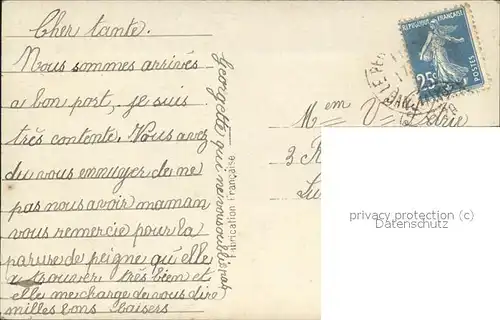 Cher tante.
Nous sommes arrivés
a bon port, je suis
très contente. Vous avez
du vous ennuyer de ne
pas nous avoir maman
vous remercie pour la
parure de peigne qu'elle
a trouver très bien et
elle me charge de vous dire
milles bons baisers
Georgette qui ne vous oublie pas
Fabrication Française
REPUBLIQUE FRANÇAISE
25c
POSTES
Mem V
3 R
privacy protection (c)
Datenschutz